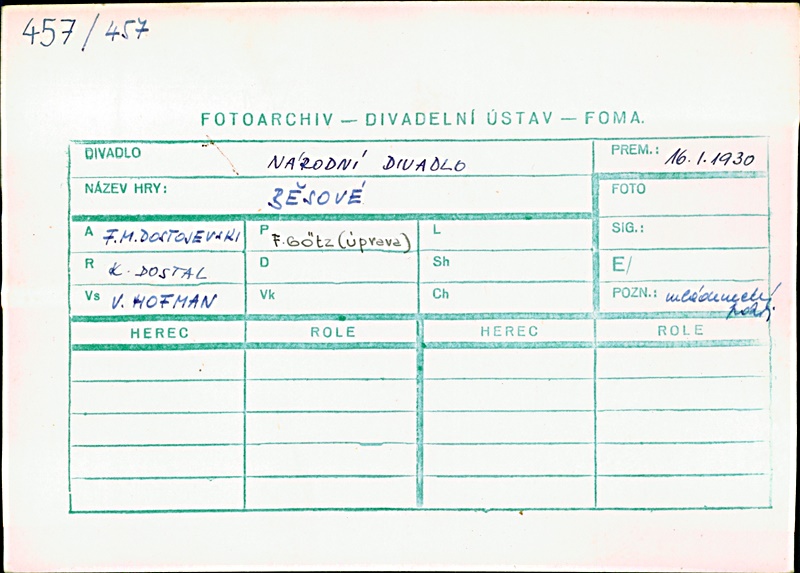 457/457
FOTOARCHIV — DIVADELNÍ ÚSTAV — FOMA.
DIVADLO NÁRODNÍ DIVADLO PREM.: 16.1.1930
NÁZEV HRY: BĚSOVÉ FOTO
A F.M.DOSTOJEVSKI P F.GÖTZ (úprava) L SIG.:
R K. DOSTAL D Sh E/
Vs V. HOFMAN Vk Ch POZN.: mládenecký
pokoj
HEREC ROLE HEREC ROLE